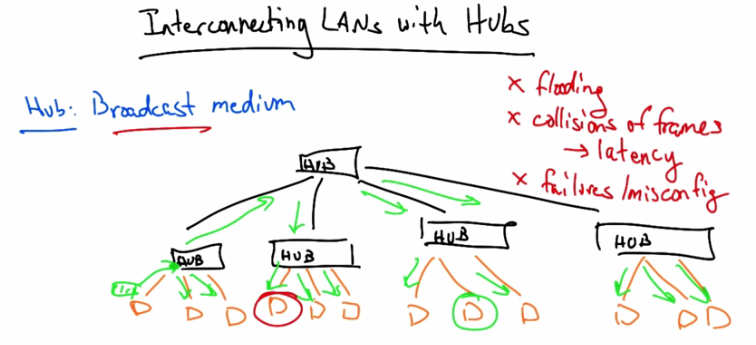 Interconnecting LANs with Hubs
Hub: Broadcast medium
x flooding
x collisions of frames
→ latency
x failures/misconfig
HUB
HUB
HUB
HUB
HUB
D D D D D D D D D D D D